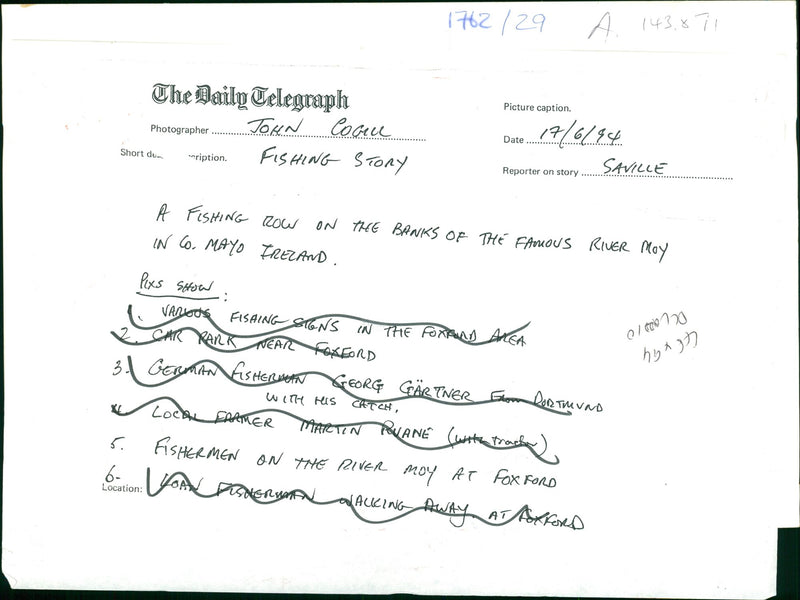 1762/29 A. 143.871
The Daily Telegraph
Picture caption.
Photographer JOHN COGILL
Date 17/6/94
Short de ription. FISHING STORY
Reporter on story SAVILLE
A FISHING ROW ON THE BANKS OF THE FAMOUS RIVER MOY
IN CO. MAYO IRELAND.
PIXS SHOW:
1. VARIOUS FISHING SIGNS IN THE FOXFORD AREA
2. CAR PARK NEAR FOXFORD
3. GERMAN FISHERMAN GEORG GÄRTNER From DORTMUND
WITH HIS CATCH.
4. LOCAL FRAMER MARTIN RUANE (with tractor)
5. FISHERMEN ON THE RIVER MOY AT FOXFORD
6- LOAN FISHERMAN WALKING AWAY. AT FOXFORD
Location: